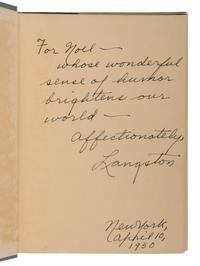 For Noel —
whose wonderful
sense of humor
brightens our
world —
Affectionately,
Langston
New York,
April 10,
1950